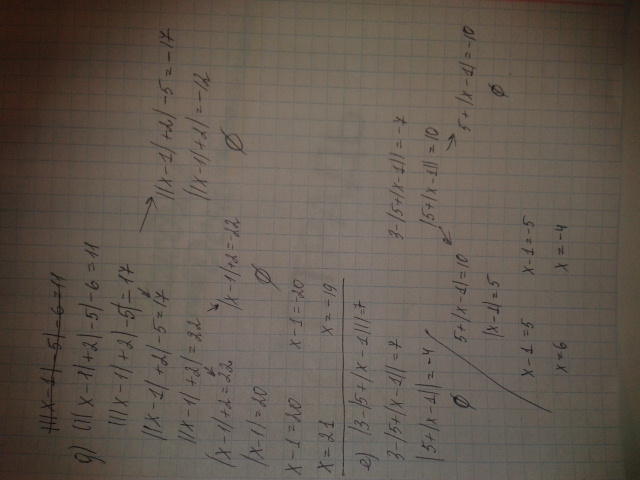 |||x-1|-5|-6=11
д) |||x-1|+2|-5|-6=11
|||x-1|+2|-5|=17
||x-1|+2|-5=17
||x-1|+2|-5=-17
||x-1|+2|=22
||x-1|+2|=-12
∅
|x-1|+2=22
|x-1|+2=-22
|x-1|=20
∅
x-1=20
x-1=-20
x=21
x=-19
е) |3-|5+|x-1|||=7
3-|5+|x-1||=7
3-|5+|x-1||=-7
|5+|x-1||=-4
|5+|x-1||=10
∅
5+|x-1|=10
5+|x-1|=-10
|x-1|=5
∅
x-1=5
x-1=-5
x=6
x=-4